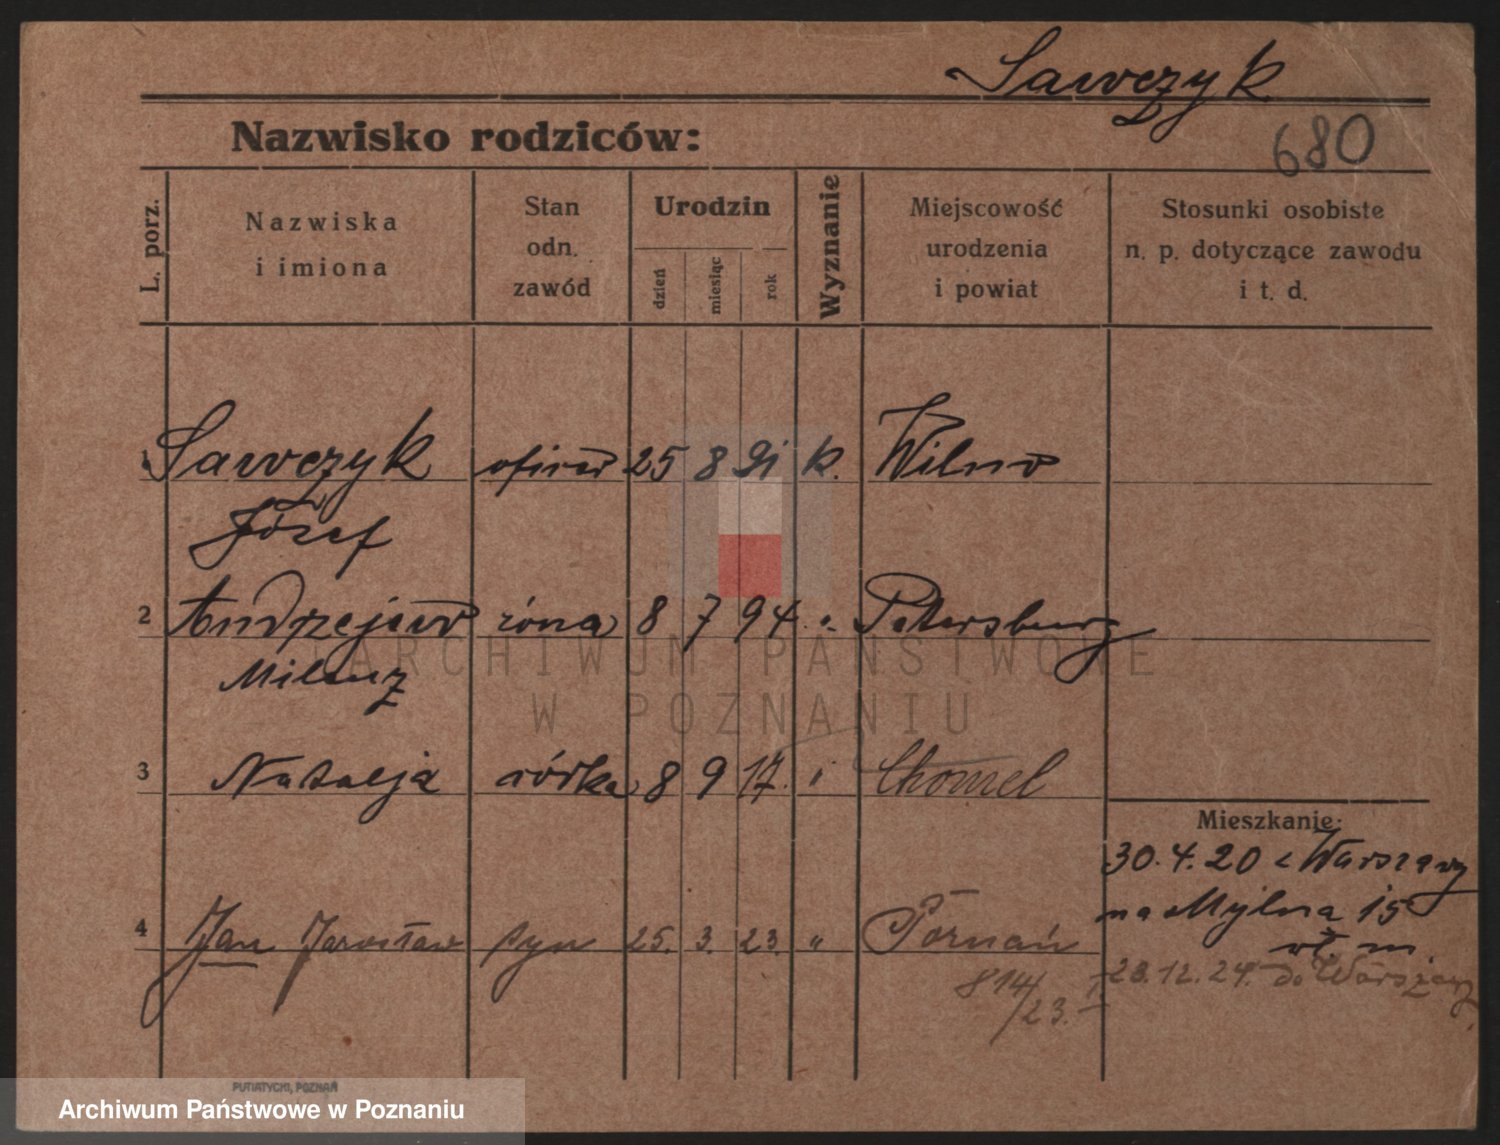 Sawczyk
680
Nazwisko rodziców:
L. porz.
Nazwiska
i imiona
Stan
odn.
zawód
Urodzin
dzień
miesiąc
rok
Wyznanie
Miejscowość
urodzenia
i powiat
Stosunki osobiste
n. p. dotyczące zawodu
i t. d.
1 Sawczyk 25 8 91 k. Wilno
Józef
2 żona 8 7 94 " Petersburg
3 Natalja córka 8 9 17. " Chomel
Mieszkanie:
30.4.20 z Warszawy
na Mylna 15
wł. m.
4 Jan Jarosław syn 25. 3. 23. " Poznań
814/23. I
28.12.24. do Warszawy
ARCHIWUM PAŃSTWOWE
W POZNANIU
PUTIATYCKI, POZNAŃ
Archiwum Państwowe w Poznaniu